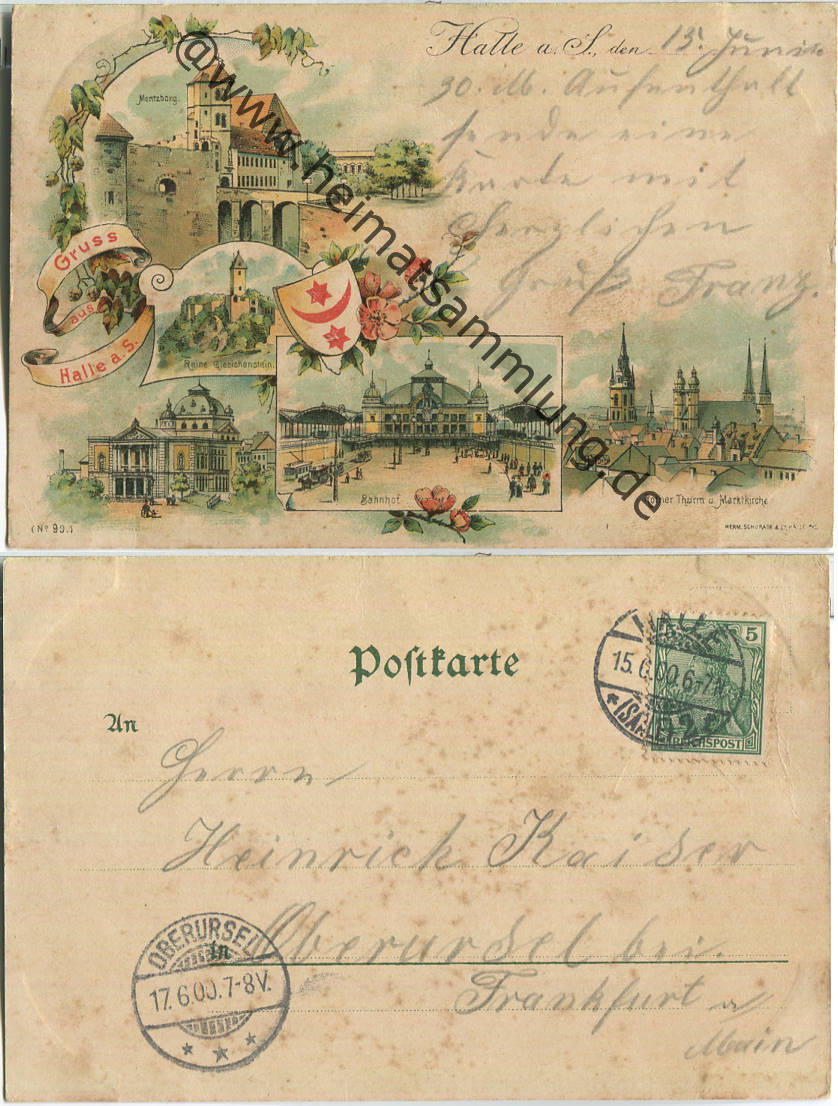 Halle a. S., den 15. Juni
30. M. Aufenthalt
sende eine
Karte mit
herzlichen
Gruß Franz.
Moritzburg.
Gruss
aus
Halle a. S.
Ruine Giebichenstein.
Bahnhof
Roter Thurm u. Marktkirche
(No 99.)
@www.heimatsammlung.de
Postkarte
HALLE
15.6.00.6-7N.
*(SAALE)
5 5
REICHSPOST
An
Herrn
Heinrich Kaiser
in Oberursel bei.
Frankfurt a
Main
OBERURSEL
17.6.00.7-8V.